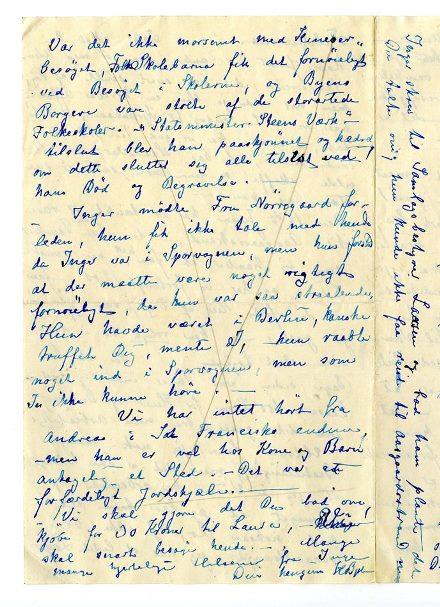 Var det ikke morsomt med Kineser=
besøget, Folkeskolebarna fik det fornøieligt
ved Besøget i Skolerne, og Byens
Borgere var stolte af de storartede
Folkeskoler. - "Statsminister Steens Værk" -
tilslut blev han paaskjønnet og hædret
om dette sluttet sig alle tilslut ved!
hans Død og Begravelse. -
Inger mødte Fru Nørregaard for-
leden, hun fik ikke tale med hende
da Inger var i Sporvognen, men hun forstod
at det maatte være noget rigtigt
fornøieligt, da hun var saa straalende,
Hun havde været i Berlin, kanske
truffet Dig, mente I, hun raabte
noget ind i Sporvognen, men som
In ikke kunne høre. -
Vi har intet hørt fra
Andreas i San Francisko endnu,
- men han er vel hos Kone og Barn
antagelig et Sted. - Det var et
forfærdeligt Jordskjælv. -
Vi skal gjøre det Du bad om!
kjøbe for 20 Kroner til Laura, - Vi
skal snart besøge hende. - Mange
mange hjertelige Hilsener fra Inger
Din hengivne
Inger skrev til Landhusbestyrer Larsen og bad ham plante den
Du talte om, hun kunde ikke faa reise til Aasgaardsstrand nu